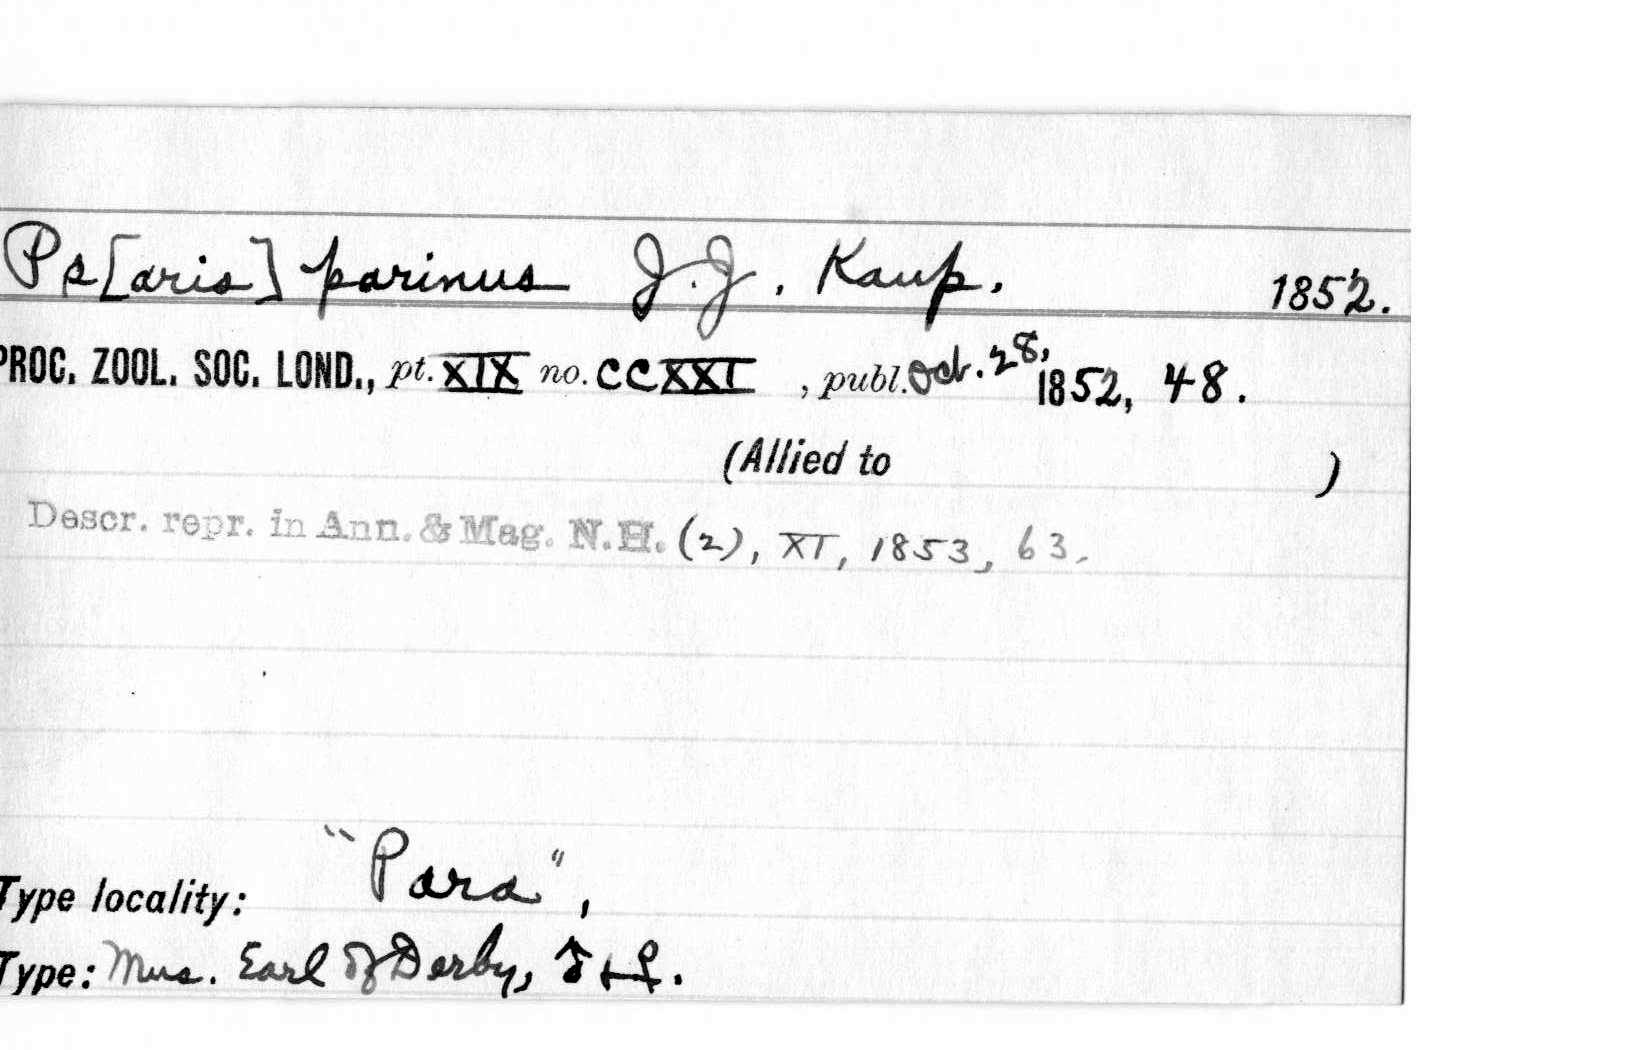 Ps[aris] parinus J.J. Kaup. 1852.
PROC. ZOOL. SOC. LOND., pt. XIX no. CCXXI , publ. Oct. 28, 1852, 48.
(Allied to )
Descr. repr. in Ann. & Mag. N.H. (2), XI, 1853, 63.
Type locality: "Para",
Type: Mus. Earl of Derby, ♂ + ♀.